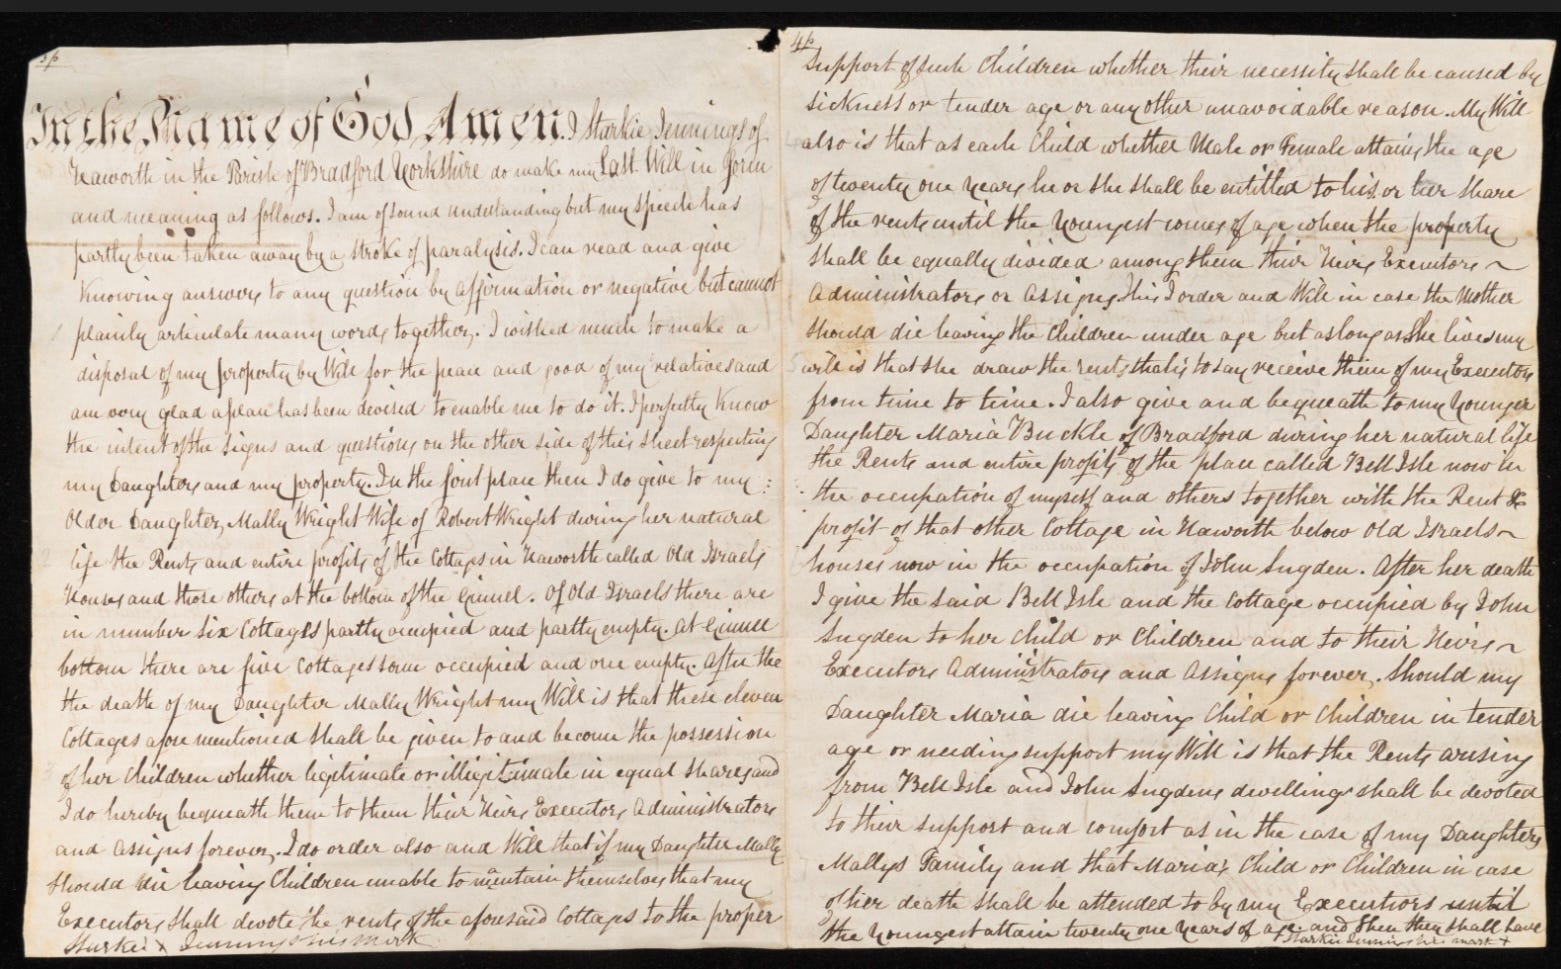 3p
In the Name of God Amen. I Starkie Jennings of
Haworth in the Parish of Bradford Yorkshire do make my Last Will in Form
and meaning as follows. I am of sound understanding but my speech has
partly been taken away by a stroke of paralysis. I can read and give
Knowing answers to any question by affirmation or negative but cannot
plainly articulate many words together. I wished much to make a
disposal of my property by Will for the peace and good of my relatives and
am very glad a plan has been devised to enable me to do it. I perfectly Know
the intent of the Signs and questions on the other side of this sheet respecting
my Daughters and my property. In the first place then I do give to my
Older Daughter, Mally Wright Wife of Robert Wright during her natural
life the Rents and entire profits of the Cottages in Haworth called Old Israels
Houses and those others at the bottom of the Ginnel. Of Old Israels there are
in number six Cottages partly occupied and partly empty. At Ginnel
bottom there are five Cottages some occupied and one empty. After the
the death of my Daughter Mally Wright my Will is that these eleven
Cottages afore mentioned shall be given to and become the possession
of her Children whether legitimate or illigitimate in equal shares and
I do hereby bequeath them to them their Heirs Executors Administrators
and Assigns forever. I do order also and Will that if my Daughter Mally
should die leaving Children unable to maintain themselves that my
Executors shall devote the rents of the aforesaid Cottages to the proper
Starkie x Jennings his mark
4p
Support of such Children whether their necessity shall be caused by
sickness or tender age or any other unavoidable reason. My Will
also is that as each Child whether Male or Female attains the age
of twenty one Years he or she shall be entitled to his or her share
of the rents until the Youngest comes of age when the property
shall be equally divided among them their Heirs Executors ~
Administrators or Assigns. This I order and Will in case the Mother
should die leaving the Children under age but as long as she lives my
will is that she draw the rents that is to say receive them of my Executors
from time to time. I also give and bequeath to my Younger
Daughter Maria Buckle of Bradford during her natural life
the Rents and entire profits of the place called Bell Isle now in
the occupation of myself and others together with the Rent &
profit of that other Cottage in Haworth below Old Israels ~
houses now in the occupation of John Sugden. After her death
I give the said Bell Isle and the Cottage occupied by John
Sugden to her Child or Children and to their Heirs ~
Executors Administrators and Assigns forever. Should my
Daughter Maria die leaving Child or Children in tender
age or needing support my Will is that the Rents arising
from Bell Isle and John Sugdens dwellings shall be devoted
to their support and comfort as in the case of my Daughters
Mallys Family and that Maria's Child or Children in case
of her death shall be attended to by my Executors until
the Youngest attain twenty one Years of age and then they shall have
Starkie Jennings his mark +